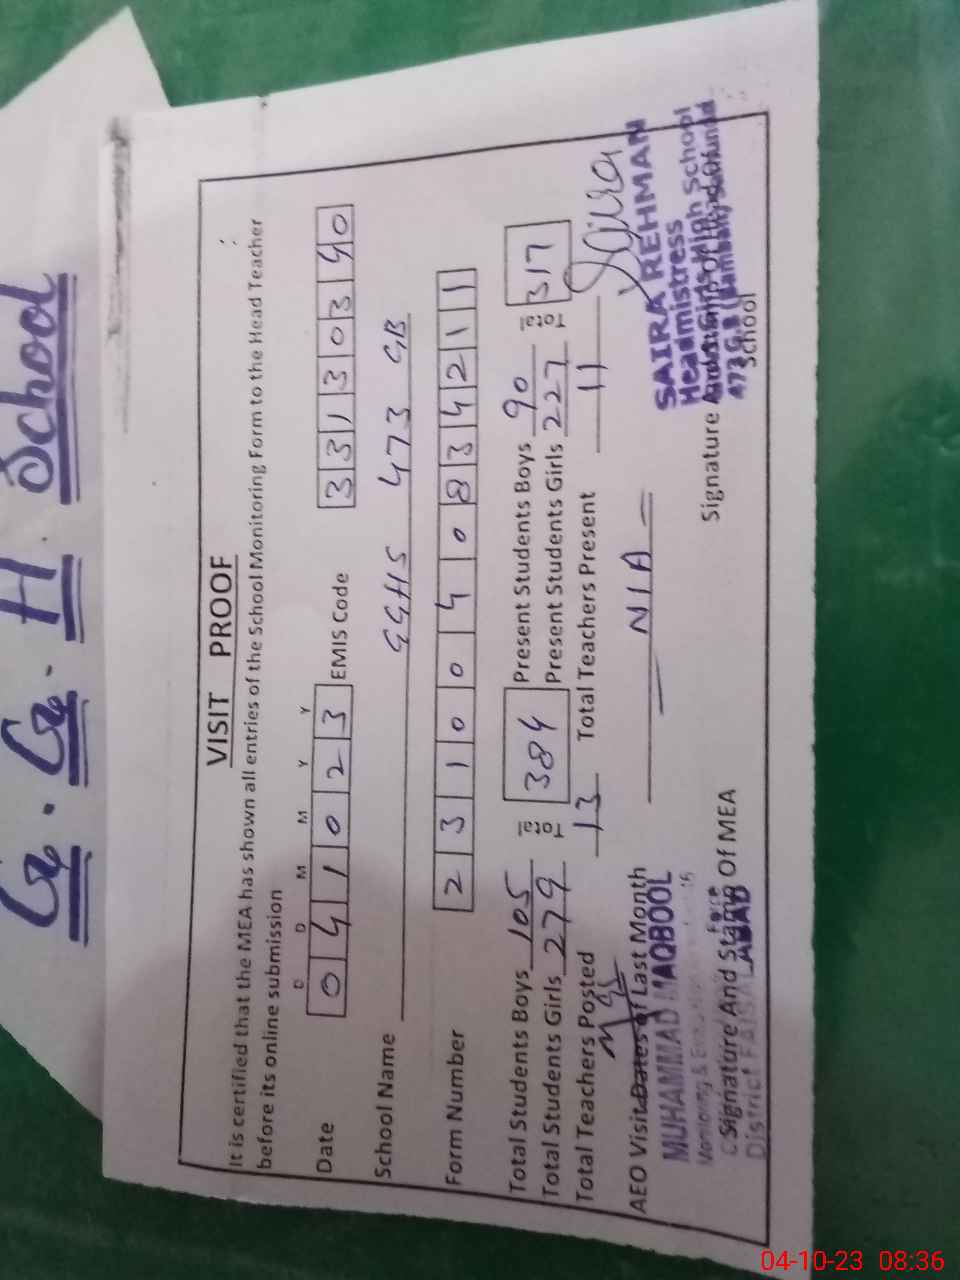 G. G. H. School
VISIT PROOF
It is certified that the MEA has shown all entries of the School Monitoring Form to the Head Teacher
before its online submission
D D M M Y Y
Date 0 4 1 0 2 3 EMIS Code 3 3 1 3 0 3 4 0
School Name GGHS 473 GB
Form Number 2 3 1 0 0 4 0 8 3 4 2 1 1
Total Students Boys 105 Total 384 Present Students Boys 90 Total 317
Total Students Girls 279 Present Students Girls 227
Total Teachers Posted 13 Total Teachers Present 11
AEO Visit Dates of Last Month N/A
MUHAMMAD MAQBOOL
SAIRA REHMAN
Headmistress
High School
Signature And Stamp Of MEA
Signature
District FAISALABAD
473 G.B
School
04-10-23 08:36